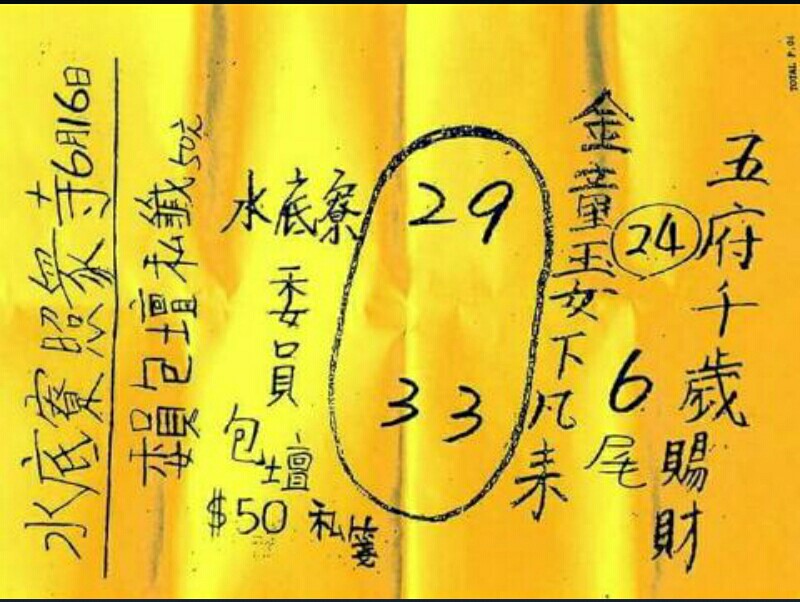 TOTAL P.01
五府千歲賜財
24
6尾
金童玉女下凡来
29
33
水底寮
委員
包壇
$50 私箋
委員包壇私籤50元
水底寮照衆寺6月16日